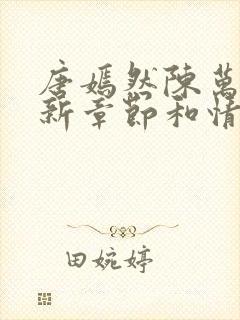 唐嫣然陳萬
新章節和情
田婉婷